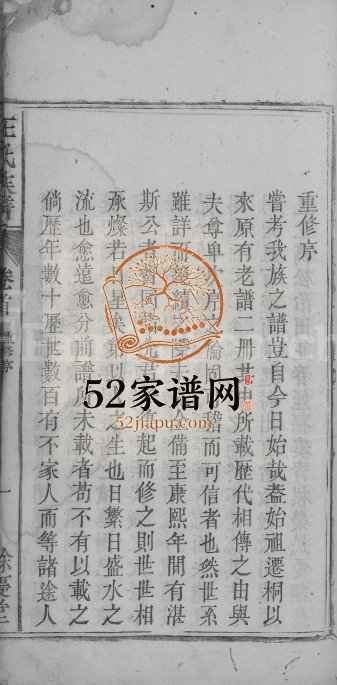 重修序
嘗考我族之譜豈自今日始哉蓋始祖遷桐以
來原有老譜二冊其中所載歷代相傳之由與
夫尊卑 序 而可信者也然世系
雖詳而 備至康熙年間有湛
斯公者 起而修之則世世相
承燦若 星矣第以 之生也日繁日盛水之
流也愈遠愈分前譜所未載者苟不有以載之
倘歷年數十歷世數百有不家人而等諸途人
氏 譜
卷首
重修序
一
餘慶堂
52家谱网
52jiapu.com